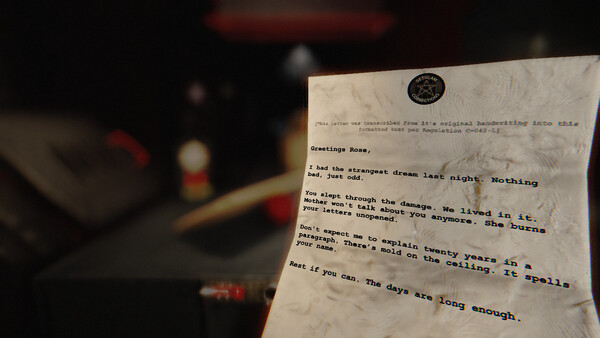 [This letter was transcribed from it's original handwriting into this
formatted text per Regulation
Greetings Rose,
I had the strangest dream last night. Nothing
bad, just odd.
You slept through the damage. We lived in it.
Mother won't talk about you anymore. She burns
your letters unopened.
Don't expect me to explain twenty years in a
paragraph. There's mold on the ceiling. It spells
your name.
Rest if you can. The days are long enough.